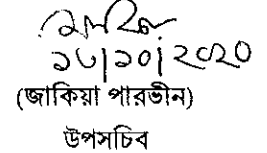 ১৮/১০/২০২০
(জাকিয়া পারভীন)
উপসচিব